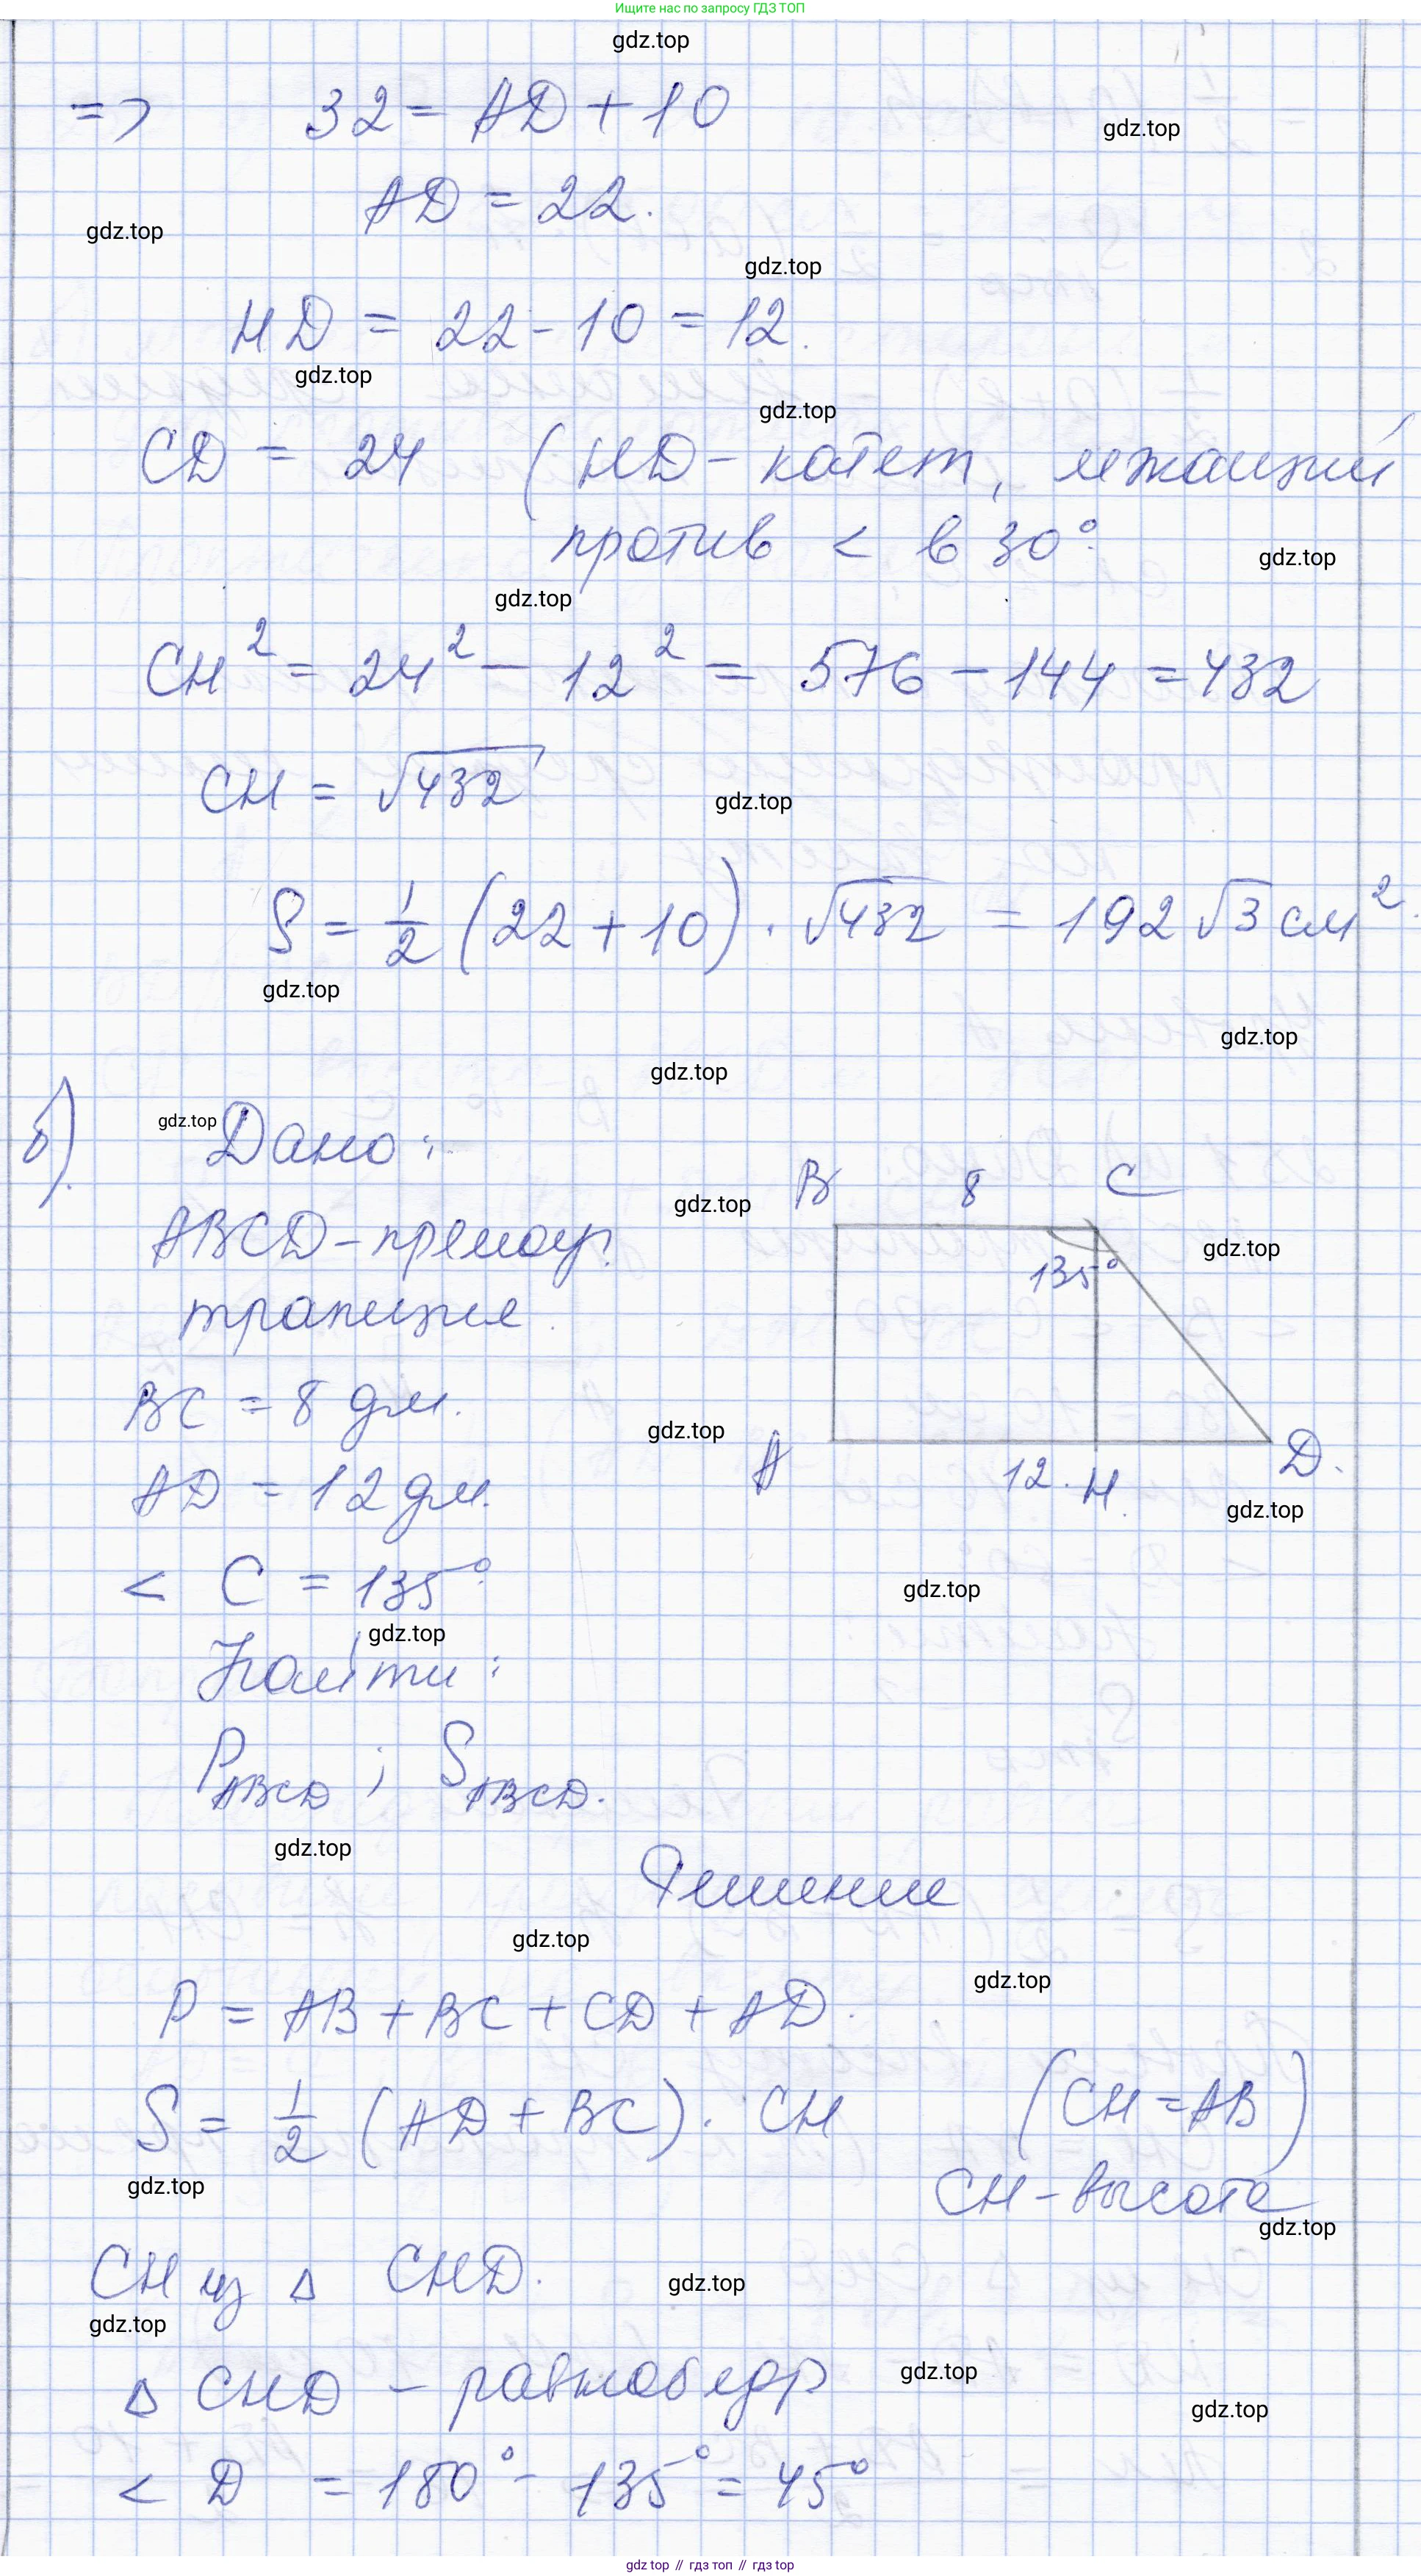 Ищите нас по запросу ГДЗ ТОП
gdz.top
=> 32 = AD + 10
gdz.top
AD = 22.
gdz.top
gdz.top
HD = 22 - 10 = 12.
gdz.top
gdz.top
CD = 24 (HD - катет, лежащий
против < в 30°.
gdz.top
gdz.top
CH² = 24² - 12² = 576 - 144 = 432
CH = √432
gdz.top
S = 1/2 (22 + 10) · √432 = 192 √3 см².
gdz.top
gdz.top
gdz.top
б).
gdz.top
Дано:
B 8 C
gdz.top
ABCD - прямоуг.
gdz.top
135°
трапеция.
BC = 8 дм.
gdz.top
A 12. H. D.
AD = 12 дм.
gdz.top
< C = 135°.
gdz.top
gdz.top
Найти:
P ABCD ; S ABCD.
gdz.top
Решение
gdz.top
gdz.top
P = AB + BC + CD + AD.
S = 1/2 (AD + BC) · CH (CH = AB)
gdz.top
CH - высота
gdz.top
CH из Δ CHD.
gdz.top
gdz.top
Δ CHD - равнобедр
gdz.top
gdz.top
< D = 180° - 135° = 45°
gdz top // гдз топ // gdz top